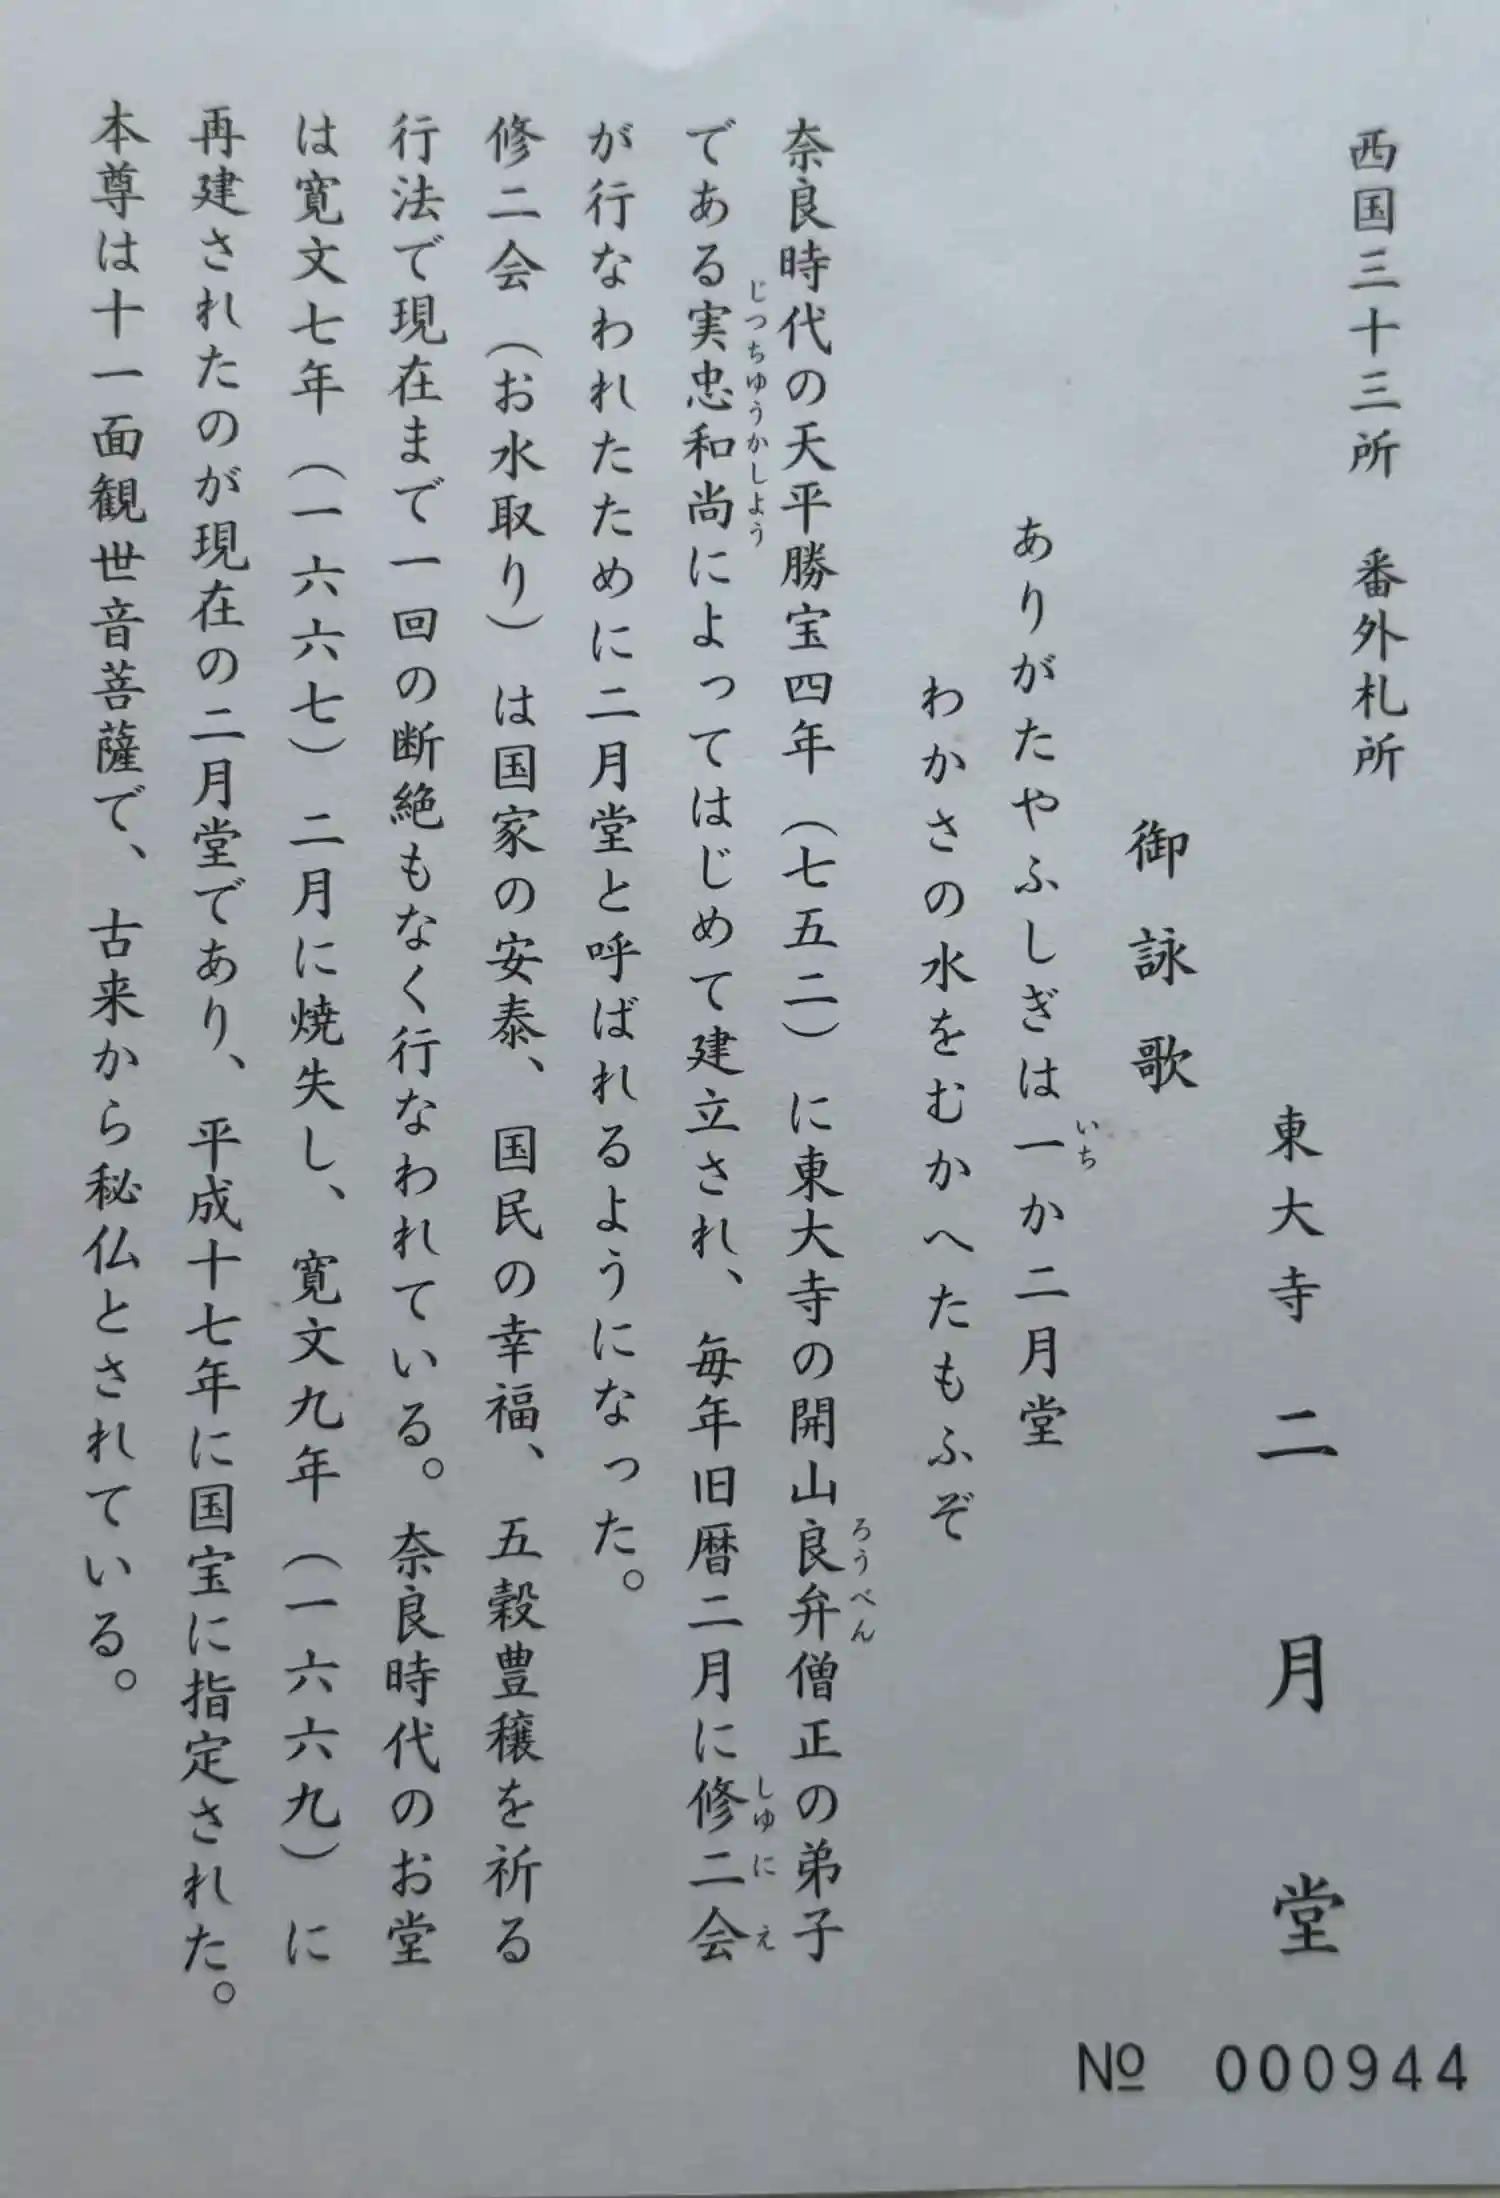 西国三十三所　番外札所
東大寺　二月堂
御詠歌
ありがたやふしぎは一か二月堂
いち
わかさの水をむかへたもふぞ
奈良時代の天平勝宝四年（七五二）に東大寺の開山良弁僧正の弟子
ろうべん
である実忠和尚によってはじめて建立され、毎年旧暦二月に修二会
じつちゆうかしよう
しゆにえ
が行なわれたために二月堂と呼ばれるようになった。
修二会（お水取り）は国家の安泰、国民の幸福、五穀豊穣を祈る
行法で現在まで一回の断絶もなく行なわれている。奈良時代のお堂
は寛文七年（一六六七）二月に焼失し、寛文九年（一六六九）に
再建されたのが現在の二月堂であり、平成十七年に国宝に指定された。
本尊は十一面観世音菩薩で、古来から秘仏とされている。
№ 000944